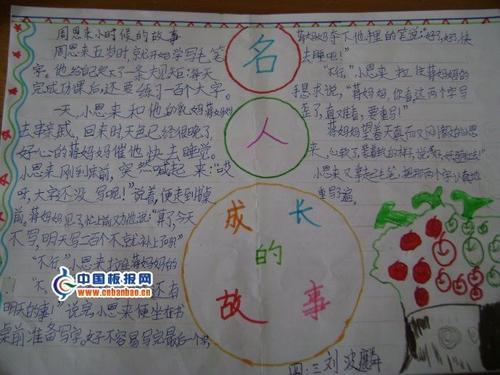 周恩来小时候的故事
周恩来五岁时,就开始学写毛笔
字。他给自己定了一条大规矩:每天
完成功课后还要练习一百个大字。
一天,小恩来和他的乳妈蒋妈妈
去串亲戚,回来时天已经很晚了,
好心的蒋妈妈催他快去睡觉。
小恩来刚到床前,突然喊起来:"哎
呀,大字还没写呢!"说着,便走到桌
前。蒋妈妈
说:"算了,今天
不写,明天写二百个不就补上了吗?"
"不行。"小恩来拉住蒋妈妈的
还有
明天的事!"说完,小恩来便坐在书
桌前准备写字。好不容易写完最后一个
名
人
成长
的
故事
蒋妈妈夺下他手里的笔说:"好,好,快
去睡吧!"
"不行。"小恩来拉住蒋妈妈的
手想说:"蒋妈妈,你看,这两个字写
歪了,真难看,要重写!"
蒋妈妈望着天真而又倔强的恩
来,
小恩来又拿起毛笔,把那两个字认真地
重写
中国板报网
www.cnbanbao.cn
四·三刘波麟